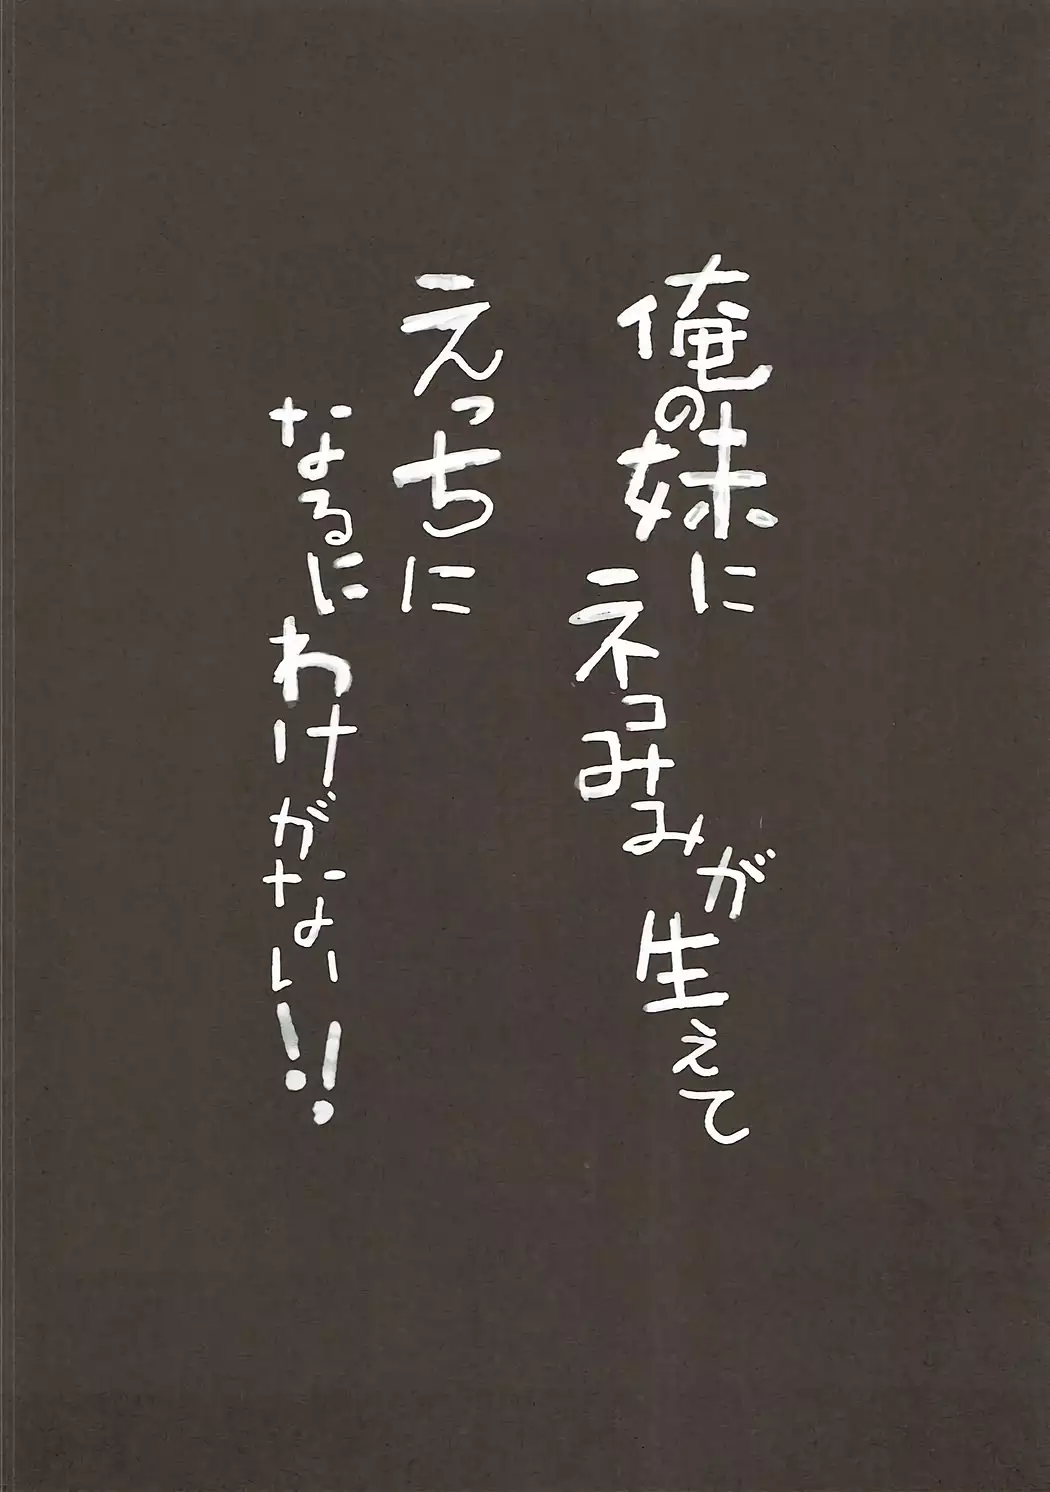 俺の妹に
ネコみみが生えて
えっちに
なるに
わけがない!!